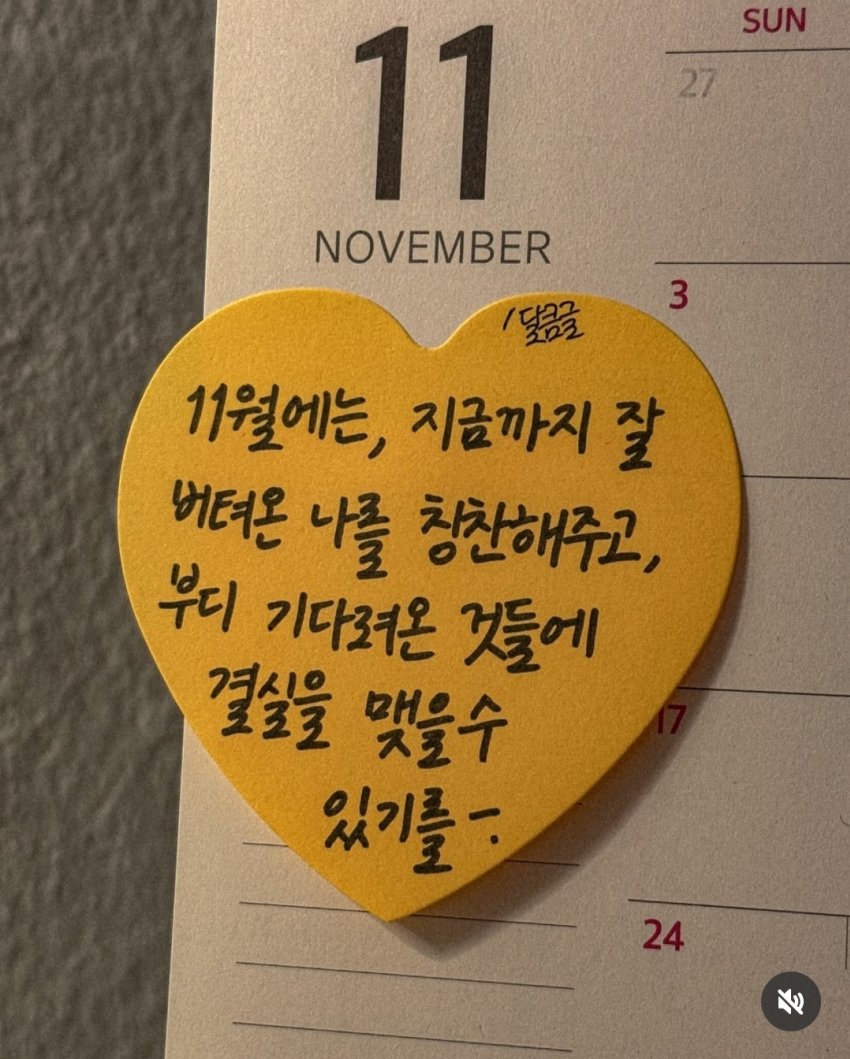 11
NOVEMBER
SUN
27
3
/달콤글
11월에는, 지금까지 잘
버텨온 나를 칭찬해주고,
부디 기다려온 것들에
결실을 맺을 수
있기를 -.
17
24